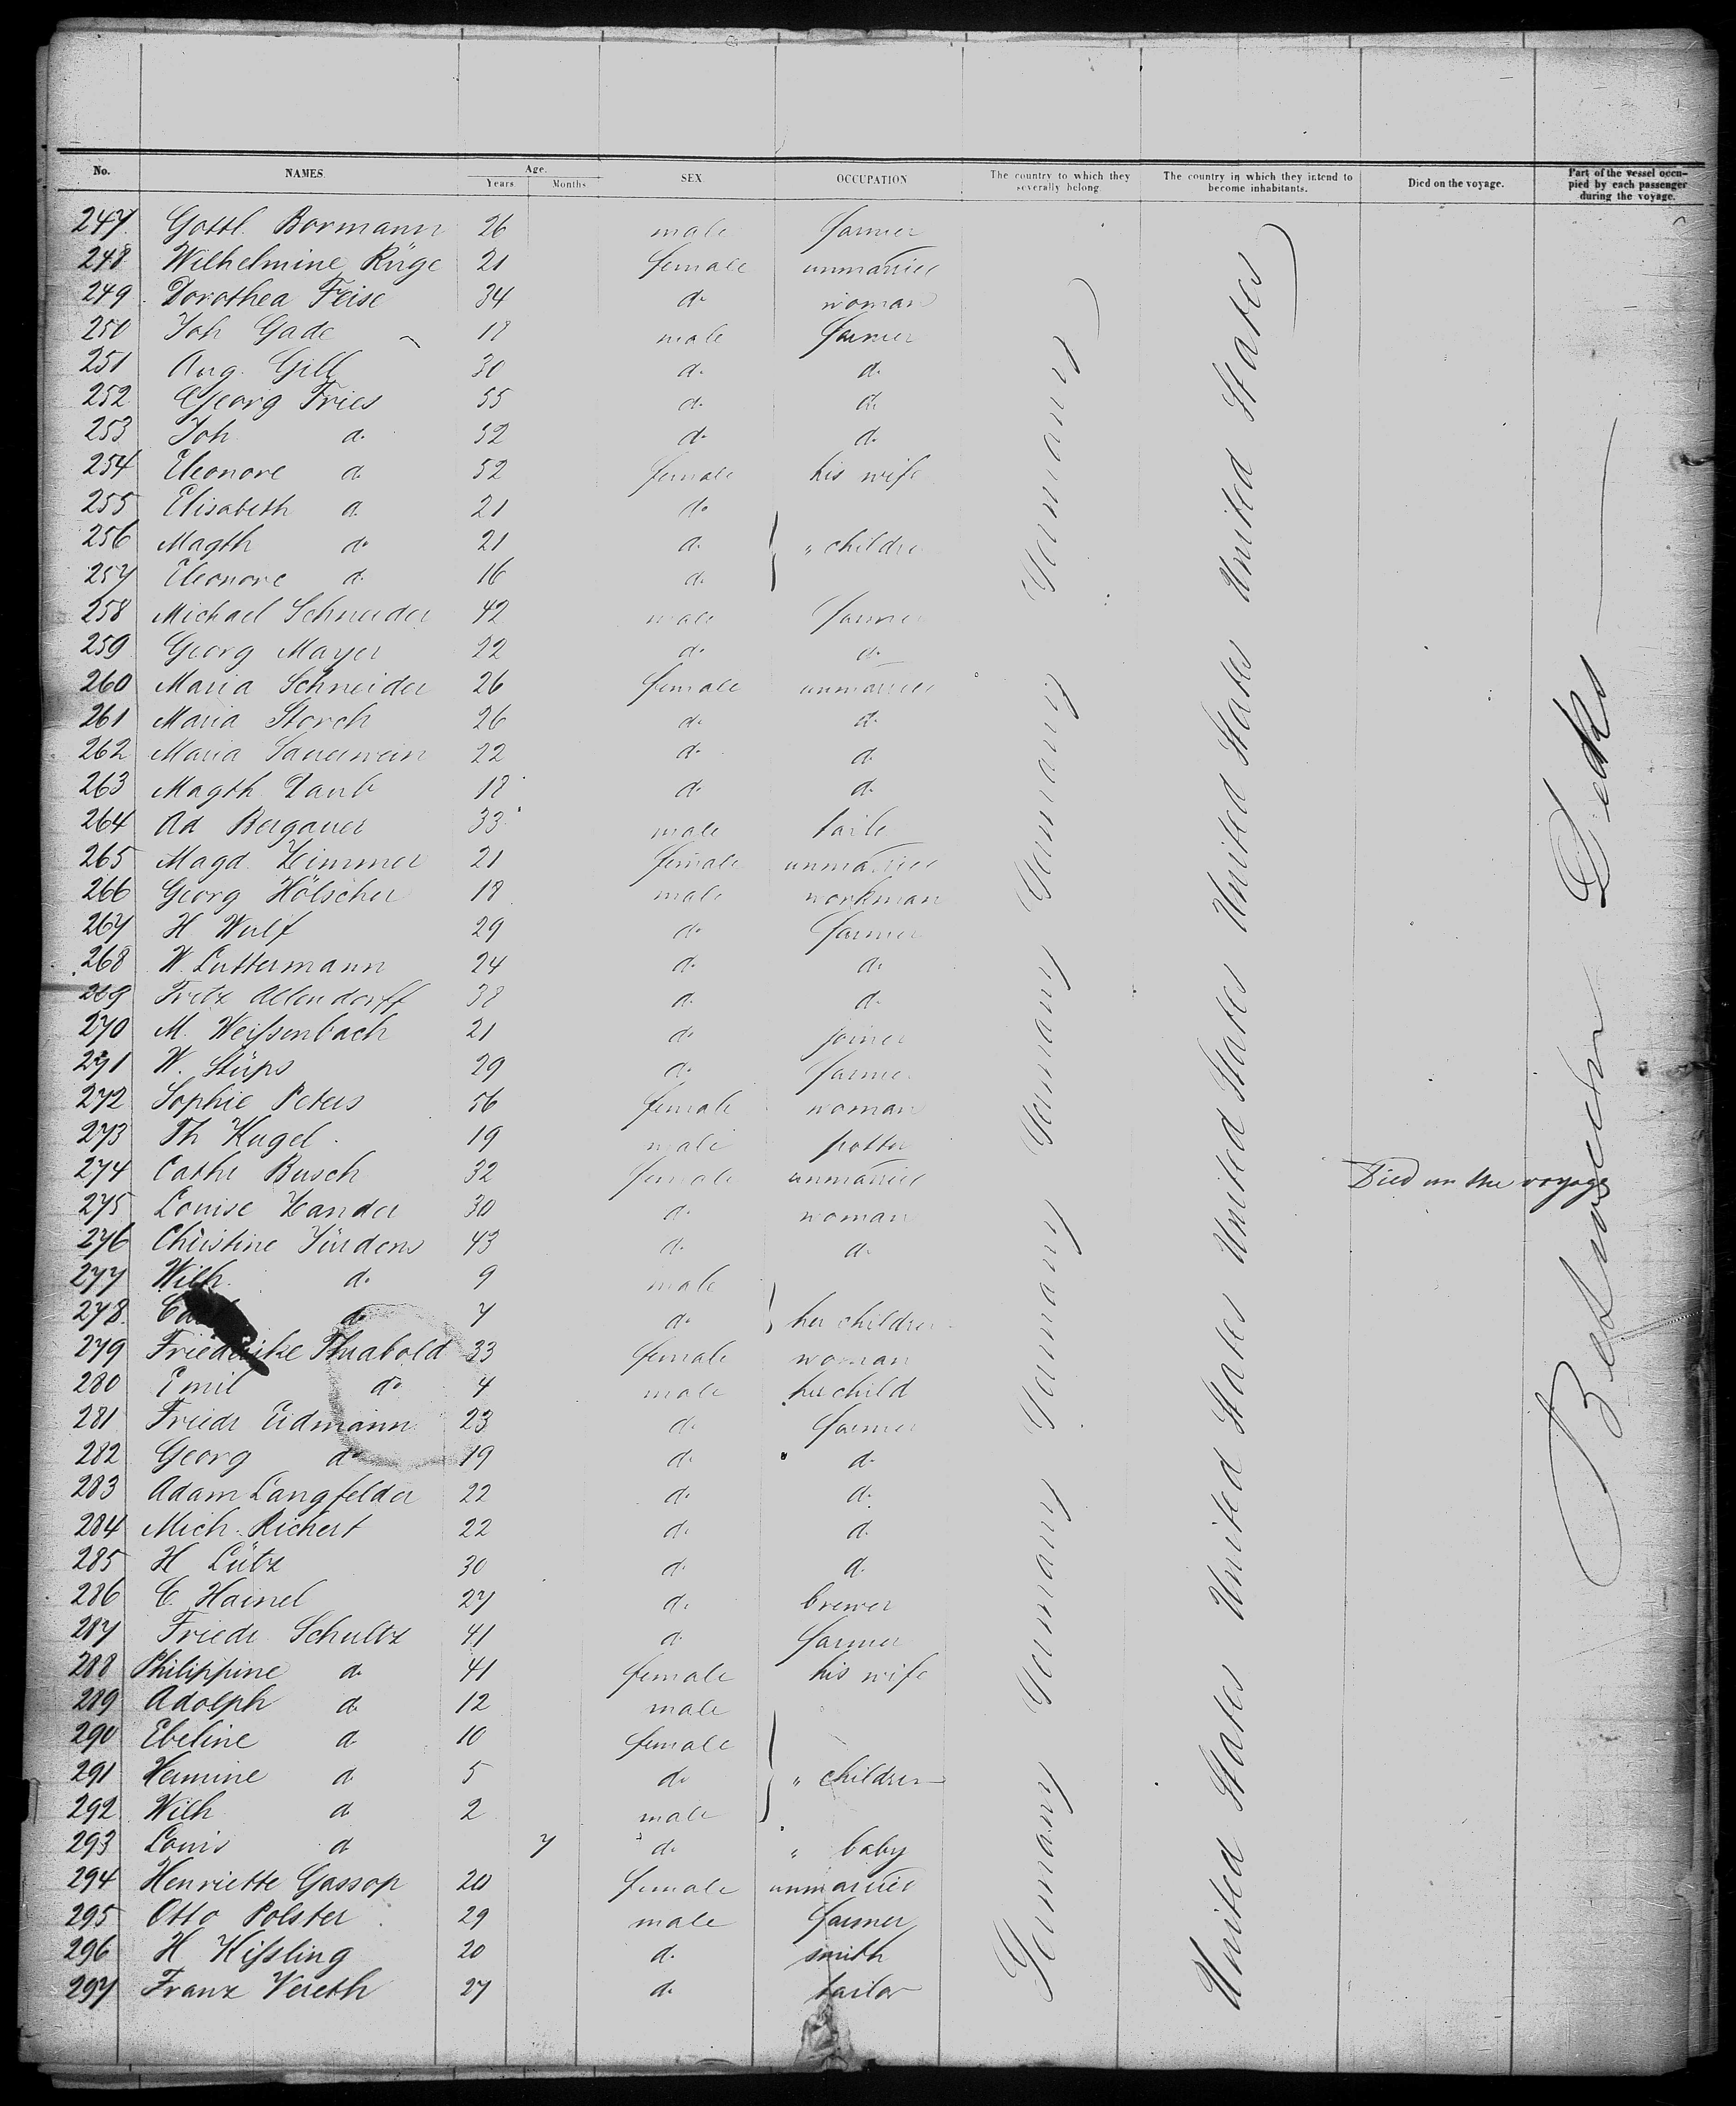 No. NAMES. Age. Years Months SEX OCCUPATION The country to which they severally belong. The country in which they intend to become inhabitants. Died on the voyage. Part of the vessel occupied by each passenger during the voyage.
247 Gottl. Bormann 26 male farmer
248 Wilhelmine Rüge 21 female unmarried
249 Dorothea Feise 34 do woman
250 Joh Gade 18 male farmer
251 Aug. Gill 30 do. do.
252 Georg Fries 55 do. do.
253 Joh do. 52 do. do.
254 Eleonore do 52 female his wife
255 Elisabeth do. 21 do
256 Magth do. 21 do. " children
257 Eleonore do. 16 do.
258 Michael Schneider 42 male farmer
259 Georg Mayer 22 do. do.
260 Maria Schneider 26 female unmarried
261 Maria Storch 26 do. do.
262 Maria Sauerwein 22 do. do.
263 Magth Daub 18 do. do.
264 Ad Bergauer 33 male tailor
265 Magd. Zimmer 21 female unmarried
266 Georg Hölscher 18 male workman
267 H Wulf 29 do. farmer
268 W. Luttermann 24 do. do.
269 Fritz Allendorff 38 do. do.
270 M. Weißenbach 21 do. joiner
271 W. Stüps 29 do. farmer
272 Sophie Peters 56 female woman
273 Th Kugel 19 male potter
274 Cathr Busch 32 female unmarried Died on the voyage
275 Louise Zander 30 do. woman
276 Christine Jürdens 43 do. do.
277 Wilh. do. 9 male
278 do 7 do. her children
279 Friederike Thiabold 33 female woman
280 Emil do 4 male her child
281 Friedr Eidmann 23 do. farmer
282 Georg do 19 do. do.
283 Adam Langfelder 22 do. do.
284 Mich. Richert 22 do. do.
285 H Lütz 30 do. do.
286 C. Hamel 27 do. brewer
287 Friedr Schultz 41 do farmer
288 Philippine do. 41 female his wife
289 Adolph do. 12 male
290 Ebeline do 10 female
291 Hermine do. 5 do " children
292 Wilh do 2 male
293 Louis do 7 do. " baby
294 Henriette Gassop 20 female unmarried
295 Otto Polster 29 male farmer
296 H Kißling 20 do. smith
297 Franz Vereth 27 do. tailor
Germany Germany Germany Germany Germany Germany
United States United States United States United States United States United States
Between Decks